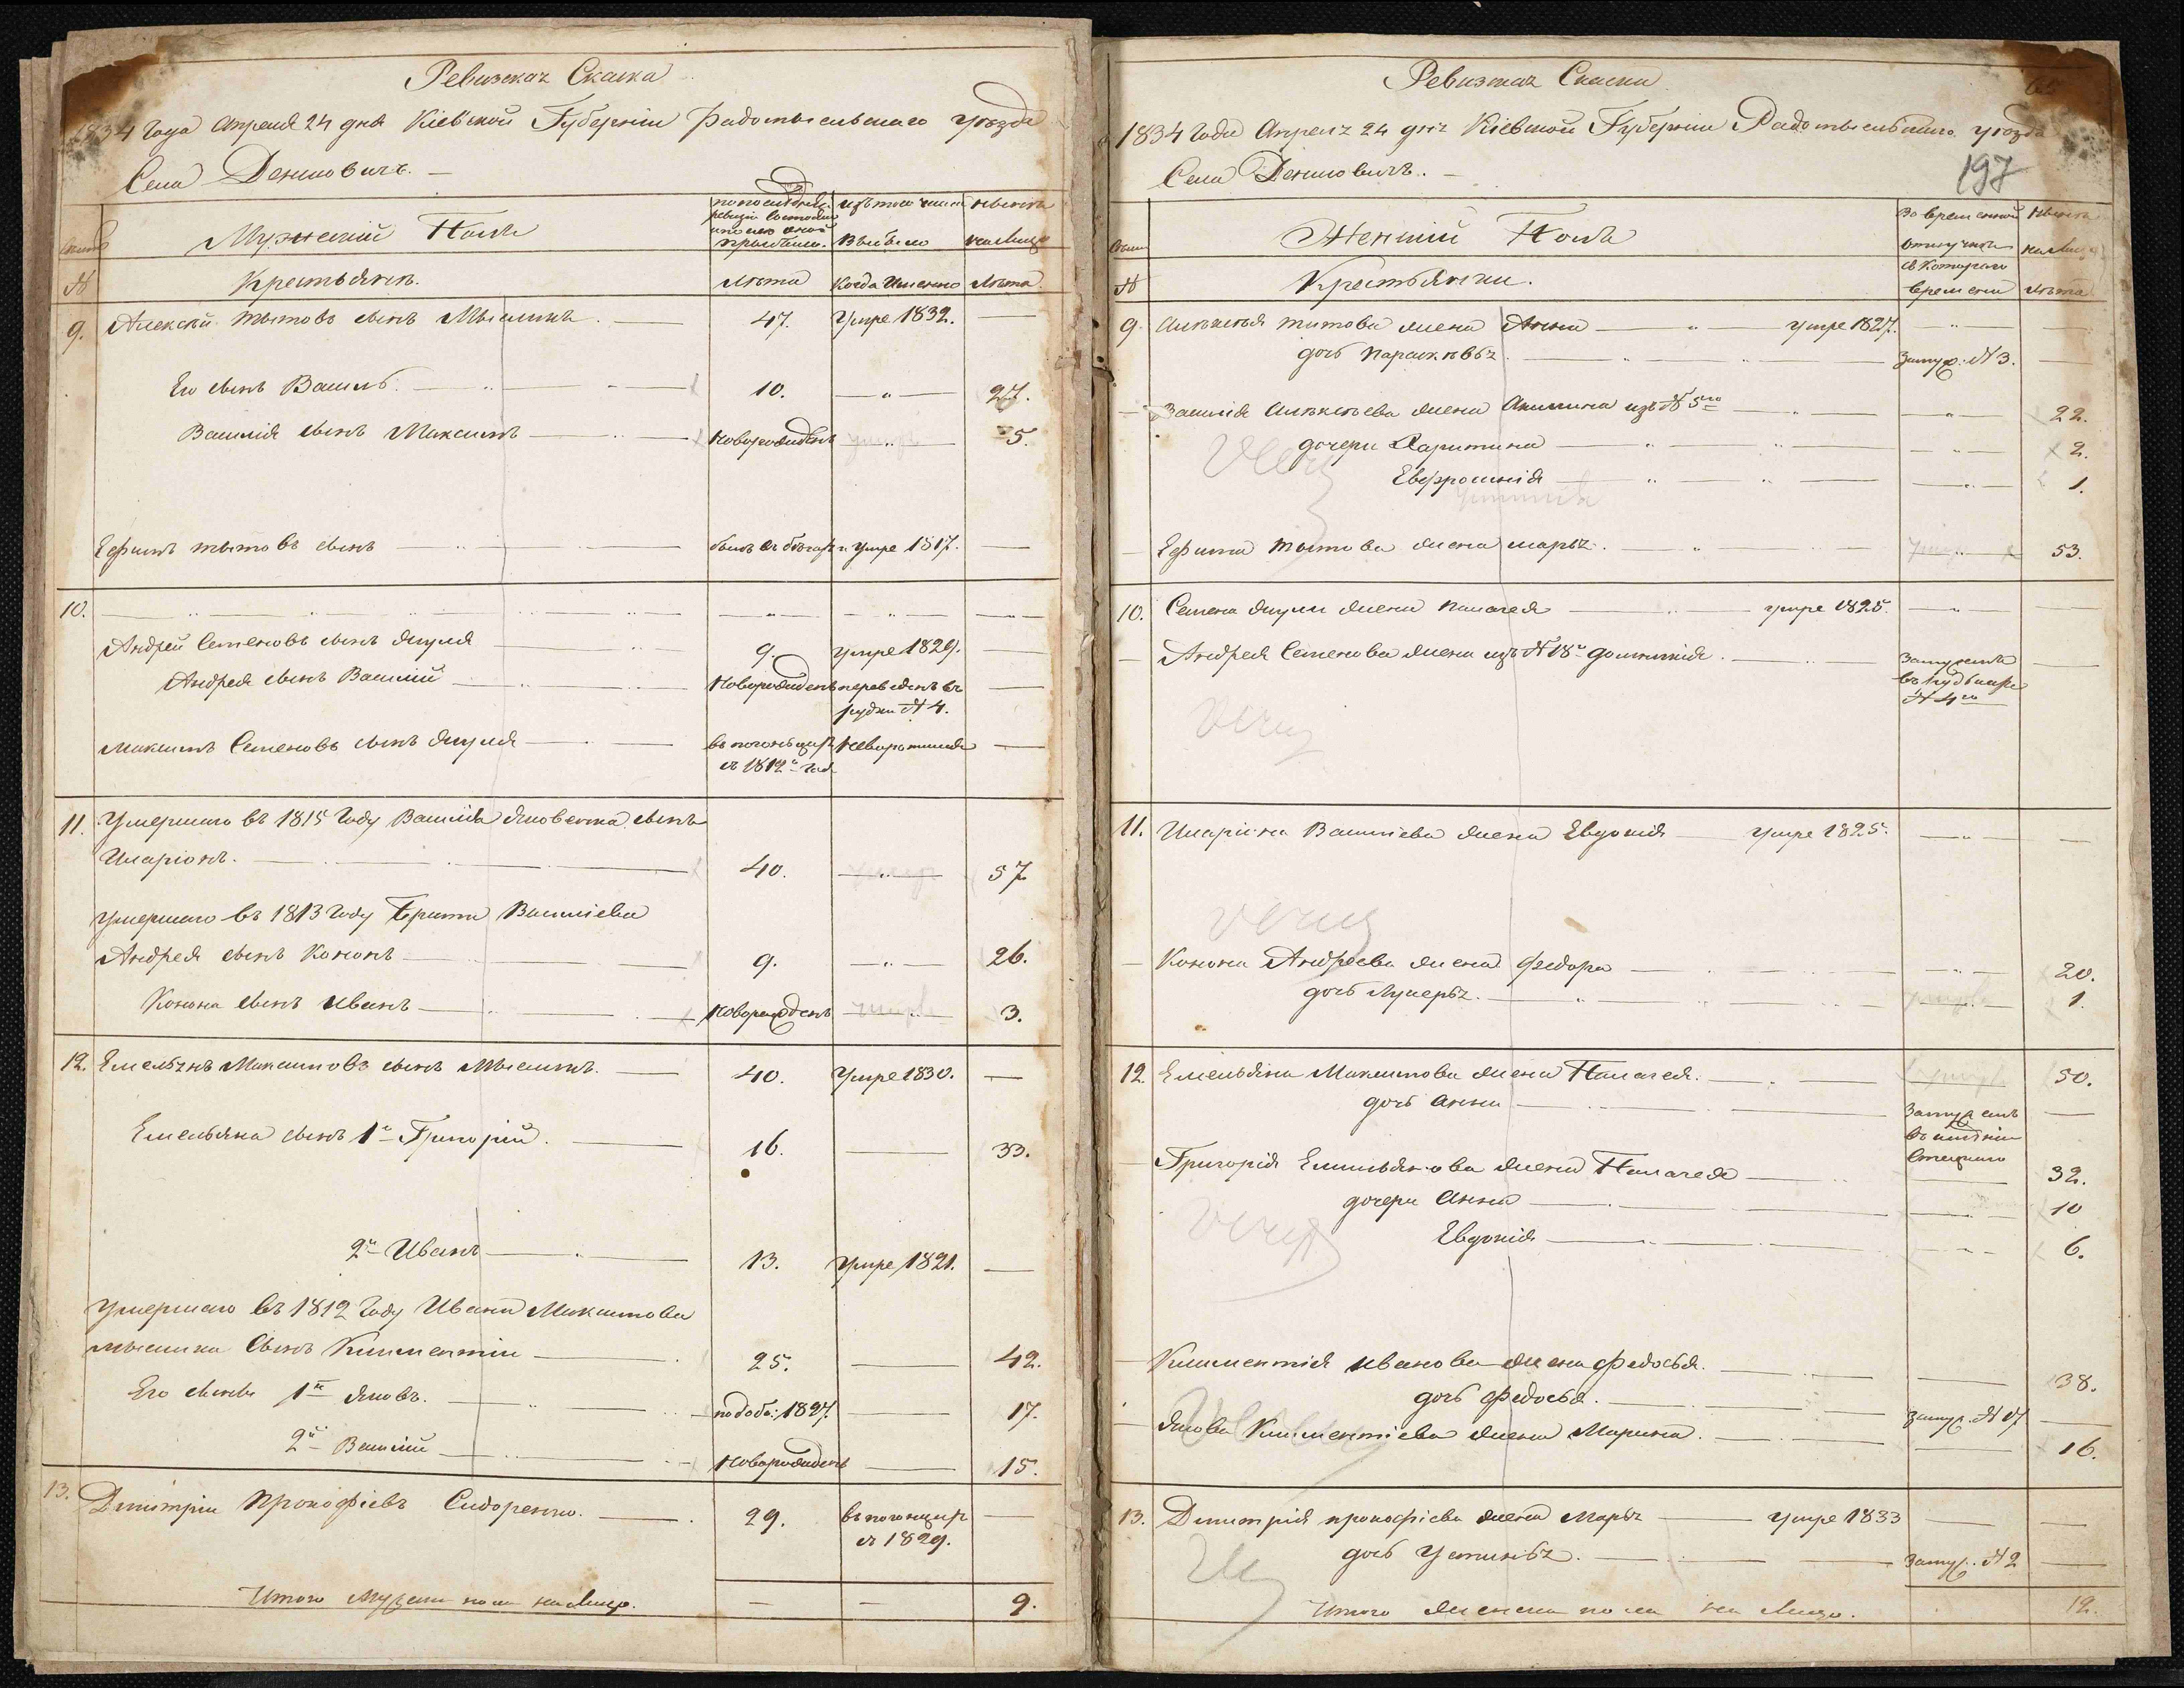 Ревизскаѧ Сказка
1834 года апреля 24 дня Кіевской Губерніи Радомысльскаго уезда
Села Денисовичъ.
Мужескій Полъ
по последней ревизіи состояло и после оной прибыло.
изъ того числа выбыло
ныне на лицо
№
Крестьянъ.
Лѣта
Когда Именно
Лѣта
9. Алексѣй Тытовъ сынъ 47. Умре 1832. —
Его сынъ Василь. 10. — 27.
Василія сынъ Максимъ новорожденъ — 5.
Ефимъ тытовъ сынъ Умре 1817. —
10.
Андрей Семеновъ сынъ 9. умре 1829. —
Андрея сынъ Василій Новорожденъ переведенъ въ —
рудни № 4.
Максимъ Семеновъ сынъ —
съ 1812 года
11. Умершаго въ 1815 Году Василія сынъ
Иларіонъ. 40. — 57
Умершаго въ 1813 Году брата Василіева
Андрея сынъ Кононъ 9. — 26.
Конона сынъ иванъ Новорожденъ — 3.
12. Емельянъ Максимовъ сынъ 40. Умре 1830. —
Емельяна сынъ 1й Григорій. 16. — 33.
2й Иванъ 13. Умре 1821. —
Умершаго въ 1812 Году Ивана Максимова
сынъ Климентій 25. — 42.
Его сынъ 1й Яковъ. 1827. — 17.
2й Василій Новорожденъ — 15.
13. Димитрій Прокофіевъ Сидоренко. 29. —
съ 1829.
Итого Мужеска пола на лицо. — — 9.
Ревизскаѧ Сказка
65
1834 Года Апреля 24 дня Кіевской Губерніи Радомысльскаго уезда
Села Денисовичъ.
197
Женскій Полъ
Во временной отлучке
ныне на лицо
№
Крестьянки.
съ котораго времени
Лѣта
9. Алексѣя титова жена Анна умре 1827. — —
дочь Парасковья замуж: № 3. —
Василія Алексѣева жена Акилина изъ № 5го — 22.
дочери Харитина — 2.
Евфросинія — 1.
Ефима Тытова жена марья. — 53.
10. Семена жена Палагея умре 1825. — —
Андрея Семенова жена изъ № 18 замужемъ —
№ 4го
11. Иларіона Василіева жена Евдокія умре 1825. — —
Конона Андреева жена федора — 20.
дочь Лукерья. — 1.
12. Емельяна Максимова жена Палагея. — 50.
дочь анна замужемъ —
въ именіи
Григорія Емильянова жена Палагея — 32.
дочери Анна — 10
Евдокія — 6.
Климентія иванова жена федосья. — 38.
дочь федосья. замуж. № 17 —
Якова Климентіева жена Марина. — 16.
13. Димитрія прокофіева жена Марья умре 1833 — —
дочь Устинья. замуж. № 2 —
Итого женска пола на лицо. 12.